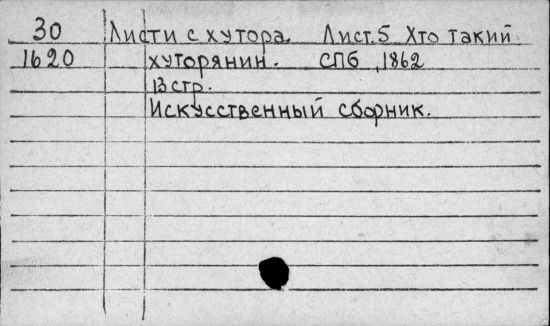 30 Листи с хутора. Лист.5 Хто такий
1620 хуторянин. СПб, 1862
13 стр.
Искусственный сборник.